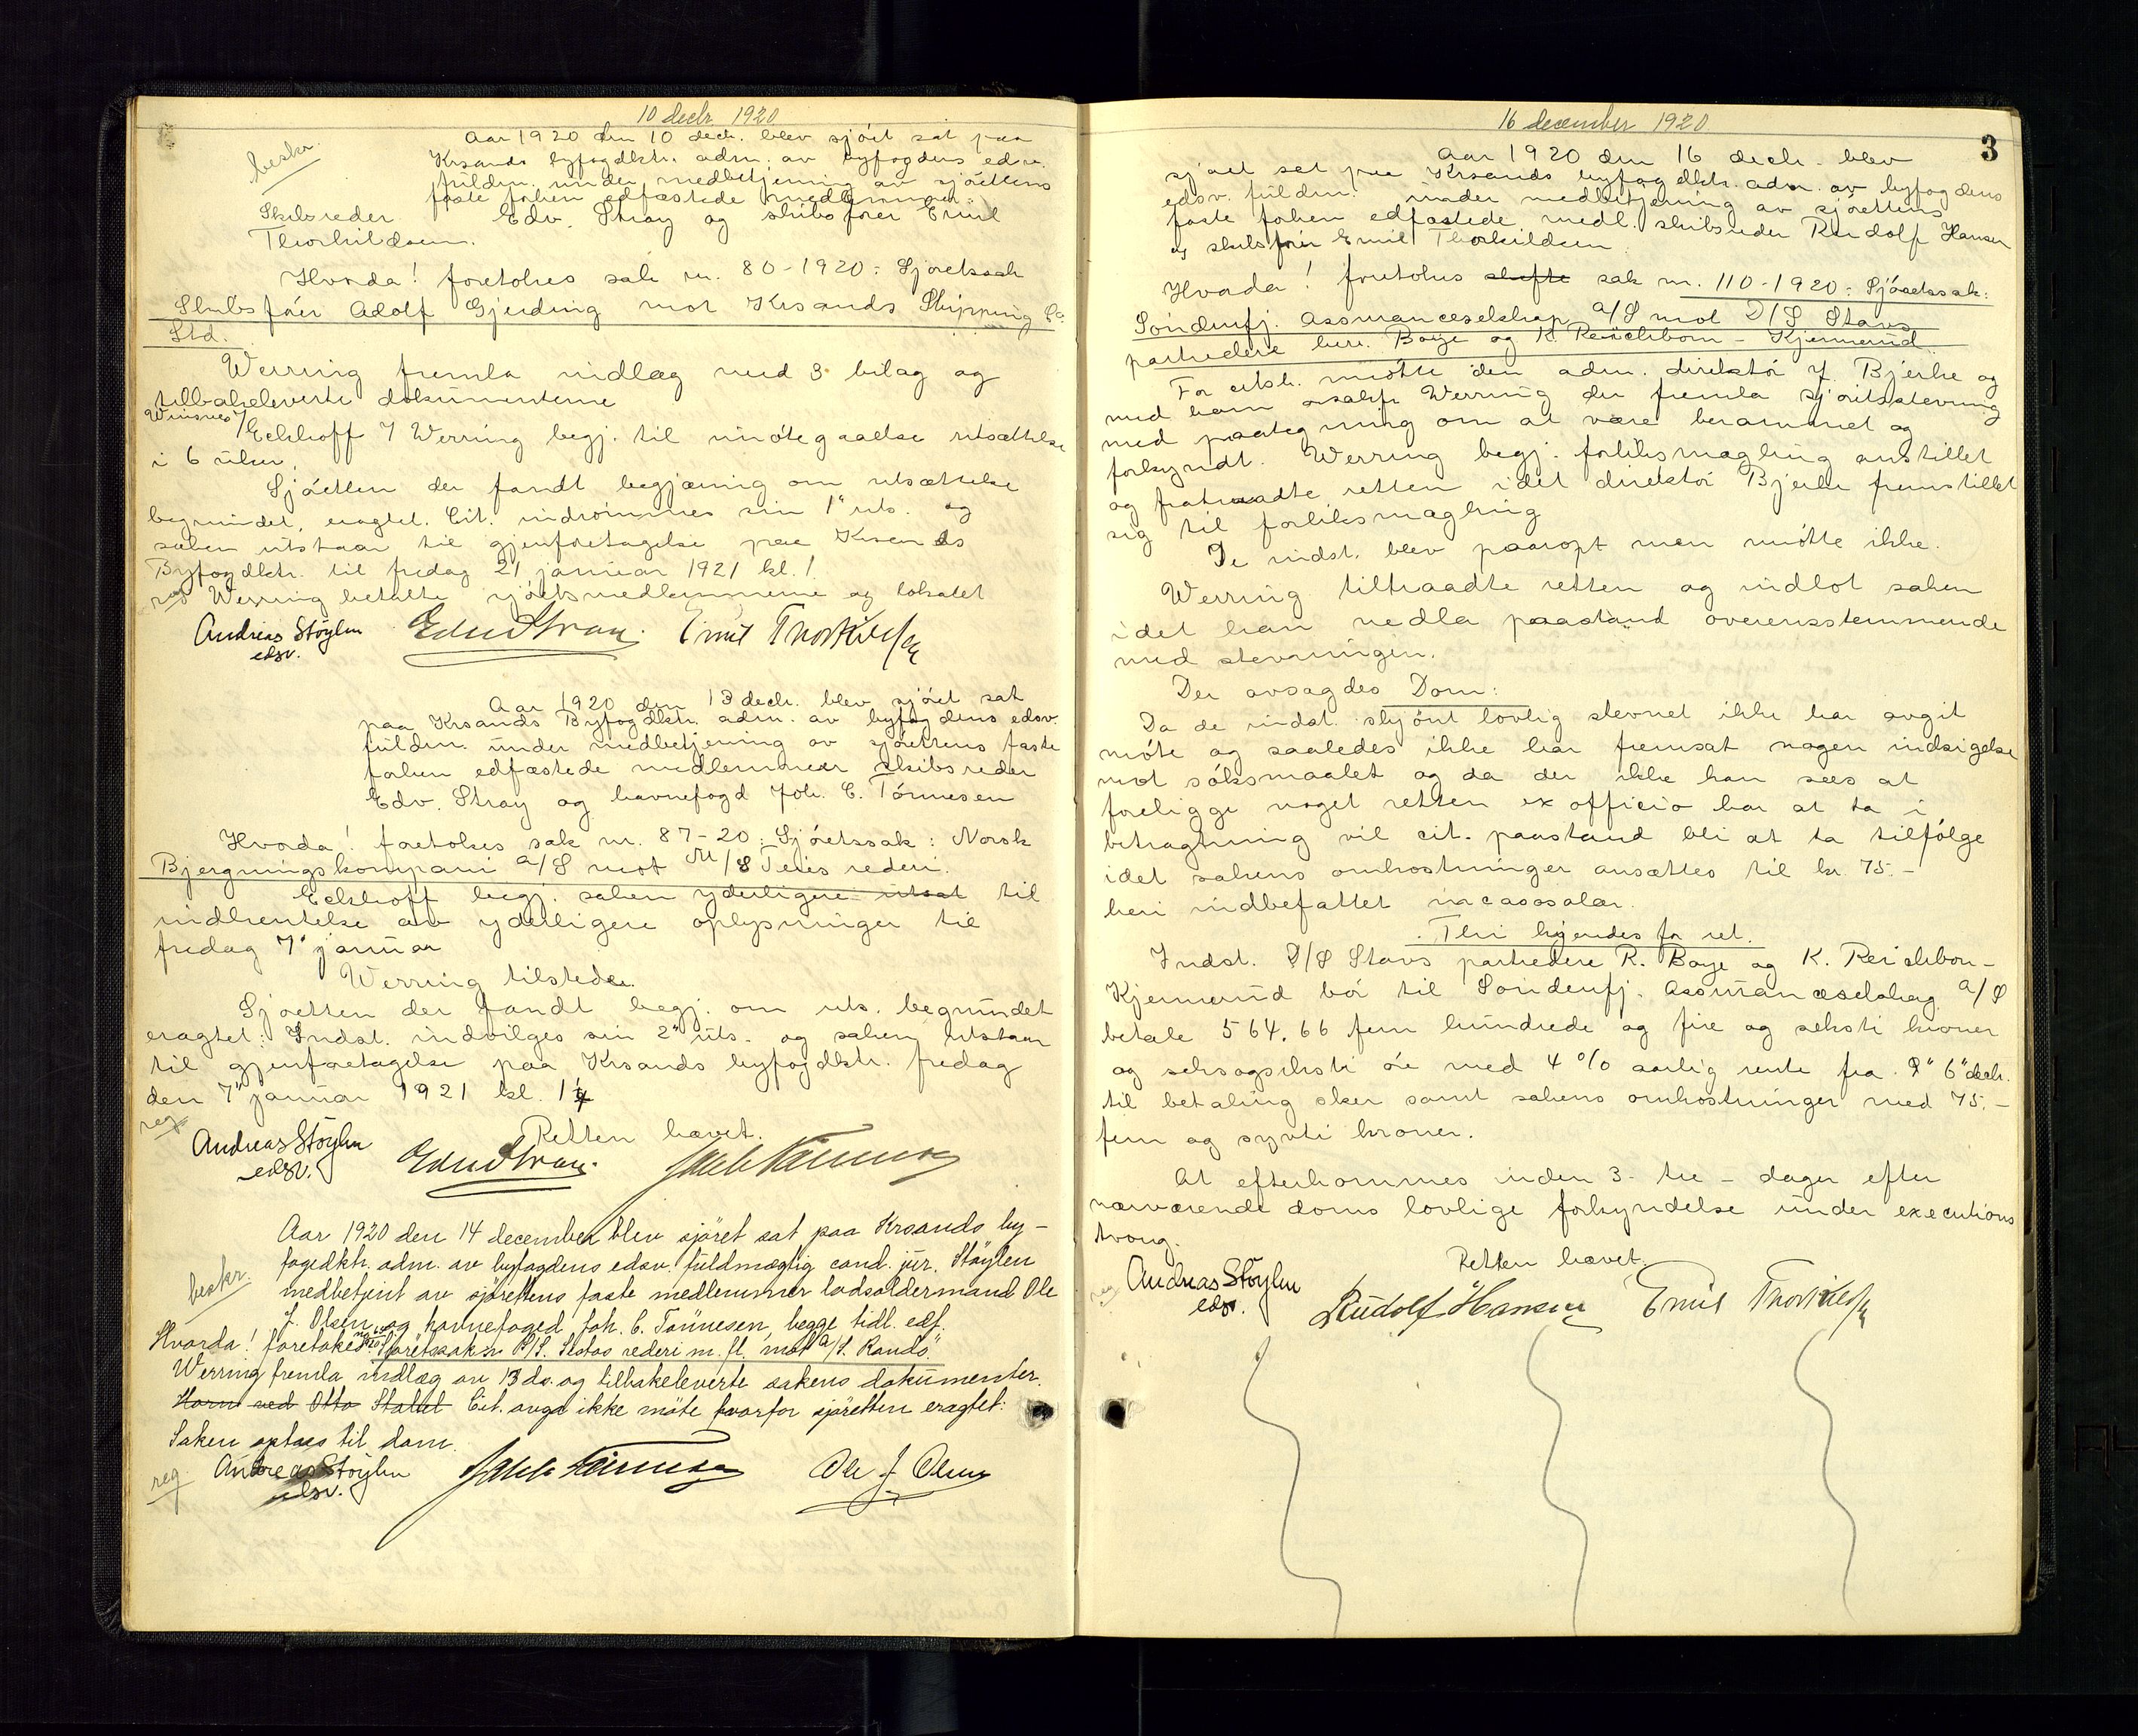 10 decbr. 1920
Aar 1920 den 10 decb. blev sjöret sat paa
beskr.
Krsands byfogdktr. adm. av byfogdens edsv.
fuldm. under medbetjening av sjörettens
faste forhen edfæstede medlemmer:
Skibsreder Edv. Stray og skibsförer Emil
Thorkildsen.
Hvorda! foretokes sak nr. 80-1920: Sjöretssak
Skibsförer Adolf Gjerding mot Krsands Shipping Co.
Ltd.
Werring fremla indlæg med 3 bilag og
tilbakeleverte dokumenterne
Winsnes /
Eckhoff / Werring begj. til imötegaaelse utsættelse
i 6 uker.
Sjöretten der fandt begjæring om utsættelse
begrundet, eragtet. Cit. indrömmes sin 1ste uts. og
saken utstaar til gjenforetagelse paa Krsands
Byfogdktr. til fredag 21 januar 1921 kl. 1.
reg Werring betalte sjöretsmedlemmerne og lokalet
Andreas Stöylen
edsv.
Edv Stray. Emil Thorkildsen
Aar 1920 den 13 decb. blev sjöret sat
paa Krsands Byfogdktr. adm. av byfogdens edsv.
fuldm. under medbetjening av sjörettens faste
forhen edfæstede medlemmer skibsreder
Edv. Stray og havnefogd Joh. C. Tönnesen
Hvorda! foretokes sak nr. 87-20: Sjöretssak: Norsk
Bjergningskompani A/S mot M/S Teies rederi.
Eckhoff begj. saken yderligere utsat til
indhentelse av yderligere oplysninger til
fredag 7' januar
Werring tilstede.
Sjöretten der fandt begj. om uts. begrundet
eragtet: Indst. indvilges sin 2' uts. og saken utstaar
til gjenforetagelse paa Krsands byfogdktr. fredag
den 7' januar 1921 kl. 1
reg
Retten hævet.
Andreas Stöylen
edsv.
Edv Stray. Joh C Tönnesen
Aar 1920 den 14 december blev sjöret sat paa Krsands by-
fogedktr. adm. av byfogdens edsv. fuldmægtig cand. jur. Stöylen
beskr.
medbetjent av sjörettens faste medlemmer lodsoldermand Ole
J. Olsen og havnefoged Joh. C. Tönnesen, begge tidl. edf.
Hvorda! foretokes Sjöretssak D/S. Statos rederi m. fl. mot A/S. Rando."
Werring fremla indlæg av 13 ds. og tilbakeleverte sakens dokumenter.
Horn ved Otto Stabel Cit. avga ikke möte hvorfor sjöretten eragtet:
Saken optaes til dom.
reg.
Andreas Stöylen
edsv.
Joh C Tönnesen Ole J Olsen
16 december 1920
3
Aar 1920 den 16 decb. blev
sjöret sat paa Krsands byfogdktr. adm. av byfogdens
edsv. fuldm. under medbetjening av sjörettens
faste forhen edfæstede medl. skibsreder Rudolf Hansen
og skibsförer Emil Thorkildsen
Hvorda! foretokes skifte sak nr. 110-1920: Sjöretssak:
Söndenfj. Assuranceselskap A/S mot D/S Stavs
partredere herr. Boye og K. Reichborn - Kjennerud.
For citsk. mötte den adm. direktör J. Bjerke og
med ham orsakf. Werring der fremla sjöretsstevning
med paategning om at være berammet og
forkyndt. Werring begj. forliksmægling anstillet
og fratraadte retten idet direktör Bjerke fremstillet
sig til forliksmægling
De indst. blev paaropt men mötte ikke.
Werring tiltraadte retten og indlot saken
idet han nedla paastand overensstemmende
med stevningen.
Der avsagdes Dom:
Da de indst. skjönt lovlig stevnet ikke har avgit
möte og saaledes ikke har fremsat nogen indsigelse
mot söksmaalet og da der ikke kan sees at
foreligge noget retten ex officio har at ta i
betragtning vil cit. paastand bli at ta tilfölge
idet sakens omkostninger ansættes til kr. 75.-
heri indbefattet incassosalær.
Thi kjendes for ret.
Indst. D/S Stavs partredere R. Boye og K. Reichborn-
Kjennerud bör til Söndenfj. Assuranceselskap A/S
betale 564.66 fem hundrede og fire og seksti kroner
og seksogseksti öre med 4 % aarlig rente fra 6' decb.
til betaling sker samt sakens omkostninger med 75.-
fem og sytti kroner.
At efterkommes inden 3 - tre - dager efter
nærværende doms lovlige forkyndelse under executions
tvang.
Retten hævet.
reg
Andreas Stöylen
edsv.
Rudolf Hansen Emil Thorkildsen